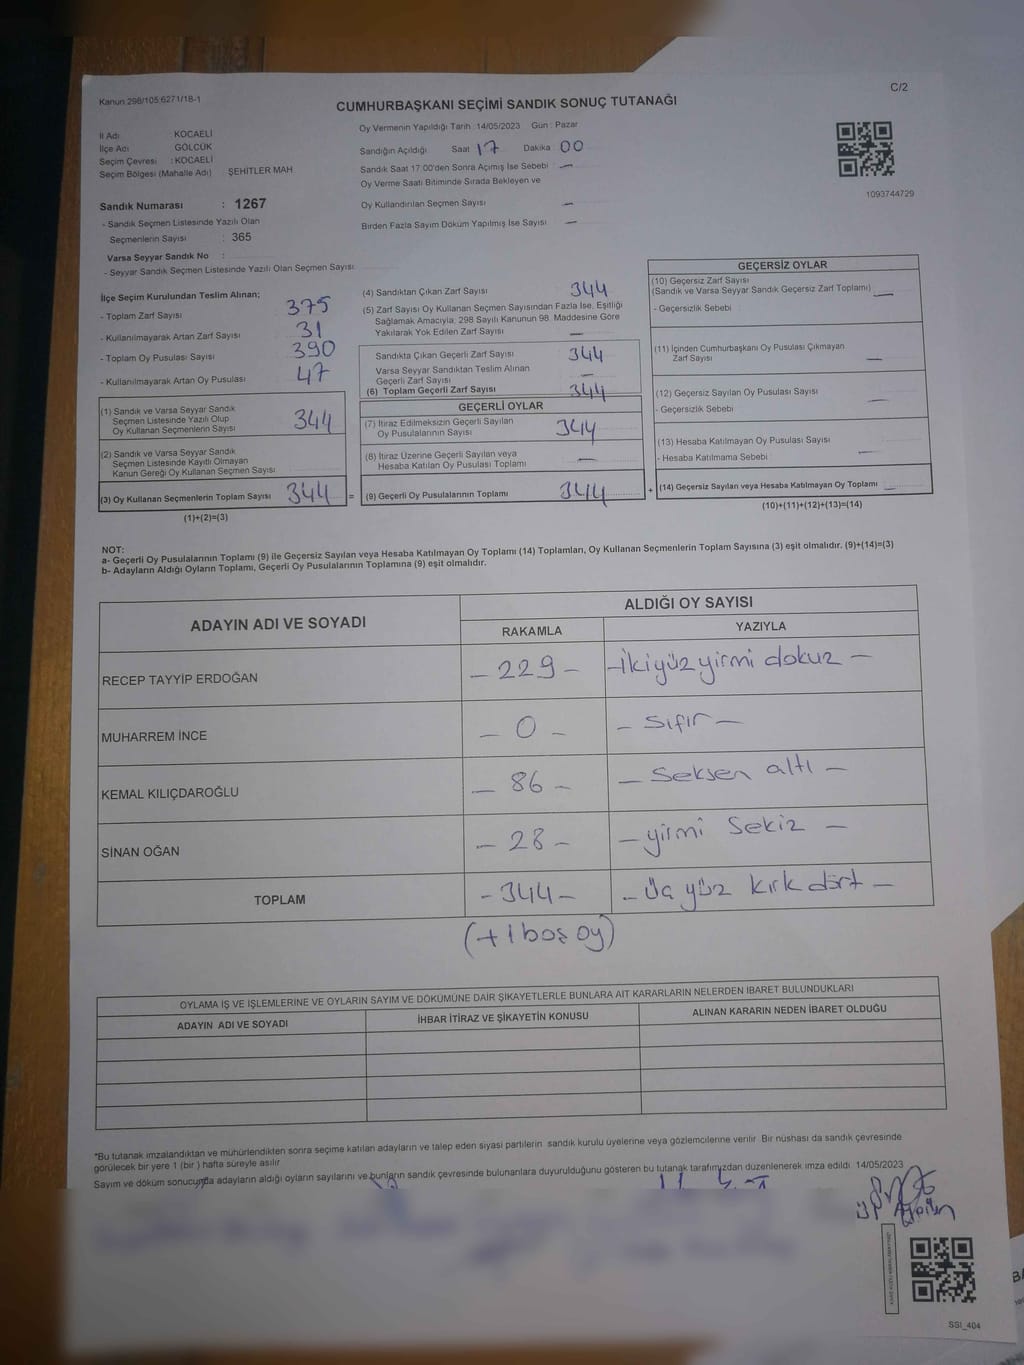 Kanun:298/105:6271/18-1
C/2
CUMHURBAŞKANI SEÇİMİ SANDIK SONUÇ TUTANAĞI
İl Adı : KOCAELİ
İlçe Adı GÖLCÜK
Seçim Çevresi : KOCAELİ
Seçim Bölgesi (Mahalle Adı) ŞEHİTLER MAH
Oy Vermenin Yapıldığı Tarih :14/05/2023 Gün : Pazar
Sandığın Açıldığı Saat 17 Dakika 00
Sandık Saat 17:00'den Sonra Açımış İse Sebebi : —
Oy Verme Saati Bitiminde Sırada Bekleyen ve
Oy Kullandırılan Seçmen Sayısı —
Birden Fazla Sayım Döküm Yapılmış İse Sayısı —
1093744729
Sandık Numarası : 1267
- Sandık Seçmen Listesinde Yazılı Olan
Seçmenlerin Sayısı : 365
Varsa Seyyar Sandık No :
- Seyyar Sandık Seçmen Listesinde Yazılı Olan Seçmen Sayısı
İlçe Seçim Kurulundan Teslim Alınan;
- Toplam Zarf Sayısı 375
- Kullanılmayarak Artan Zarf Sayısı 31
- Toplam Oy Pusulası Sayısı 390
- Kullanılmayarak Artan Oy Pusulası 47
(1) Sandık ve Varsa Seyyar Sandık
Seçmen Listesinde Yazılı Olup
Oy Kullanan Seçmenlerin Sayısı 344
(2) Sandık ve Varsa Seyyar Sandık
Seçmen Listesinde Kayıtlı Olmayan
Kanun Gereği Oy Kullanan Seçmen Sayısı
(3) Oy Kullanan Seçmenlerin Toplam Sayısı 344 =
(1)+(2)=(3)
(4) Sandıktan Çıkan Zarf Sayısı 344
(5) Zarf Sayısı Oy Kullanan Seçmen Sayısından Fazla İse, Eşitliği
Sağlamak Amacıyla, 298 Sayılı Kanunun 98. Maddesine Göre
Yakılarak Yok Edilen Zarf Sayısı —
Sandıkta Çıkan Geçerli Zarf Sayısı 344
Varsa Seyyar Sandıktan Teslim Alınan
Geçerli Zarf Sayısı —
(6) Toplam Geçerli Zarf Sayısı 344
GEÇERLİ OYLAR
(7) İtiraz Edilmeksizin Geçerli Sayılan
Oy Pusulalarının Sayısı 344
(8) İtiraz Üzerine Geçerli Sayılan veya
Hesaba Katılan Oy Pusulası Toplamı —
(9) Geçerli Oy Pusulalarının Toplamı 344 +
GEÇERSİZ OYLAR
(10) Geçersiz Zarf Sayısı
(Sandık ve Varsa Seyyar Sandık Geçersiz Zarf Toplamı) —
- Geçersizlik Sebebi
(11) İçinden Cumhurbaşkanı Oy Pusulası Çıkmayan
Zarf Sayısı —
(12) Geçersiz Sayılan Oy Pusulası Sayısı —
- Geçersizlik Sebebi
(13) Hesaba Katılmayan Oy Pusulası Sayısı —
- Hesaba Katılmama Sebebi
(14) Geçersiz Sayılan veya Hesaba Katılmayan Oy Toplamı —
(10)+(11)+(12)+(13)=(14)
NOT:
a- Geçerli Oy Pusulalarının Toplamı (9) ile Geçersiz Sayılan veya Hesaba Katılmayan Oy Toplamı (14) Toplamları, Oy Kullanan Seçmenlerin Toplam Sayısına (3) eşit olmalıdır. (9)+(14)=(3)
b- Adayların Aldığı Oyların Toplamı, Geçerli Oy Pusulalarının Toplamına (9) eşit olmalıdır.
ADAYIN ADI VE SOYADI ALDIĞI OY SAYISI
RAKAMLA YAZIYLA
RECEP TAYYİP ERDOĞAN — 229 — — İkiyüz yirmi dokuz —
MUHARREM İNCE — 0 — — sıfır —
KEMAL KILIÇDAROĞLU — 86 — — Seksen altı —
SİNAN OĞAN — 28 — — yirmi Sekiz —
TOPLAM - 344 — — Üç yüz kırk dört —
(+1 boş oy)
OYLAMA İŞ VE İŞLEMLERİNE VE OYLARIN SAYIM VE DÖKÜMÜNE DAİR ŞİKAYETLERLE BUNLARA AİT KARARLARIN NELERDEN İBARET BULUNDUKLARI
ADAYIN ADI VE SOYADI İHBAR İTİRAZ VE ŞİKAYETİN KONUSU ALINAN KARARIN NEDEN İBARET OLDUĞU
*Bu tutanak imzalandıktan ve mühürlendikten sonra seçime katılan adayların ve talep eden siyasi partilerin sandık kurulu üyelerine veya gözlemcilerine verilir. Bir nüshası da sandık çevresinde
görülecek bir yere 1 (bir) hafta süreyle asılır
Sayım ve döküm sonucunda adayların aldığı oyların sayılarını ve bunların sandık çevresinde bulunanlara duyurulduğunu gösteren bu tutanak tarafımızdan düzenlenerek imza edildi 14/05/2023
SSI_404